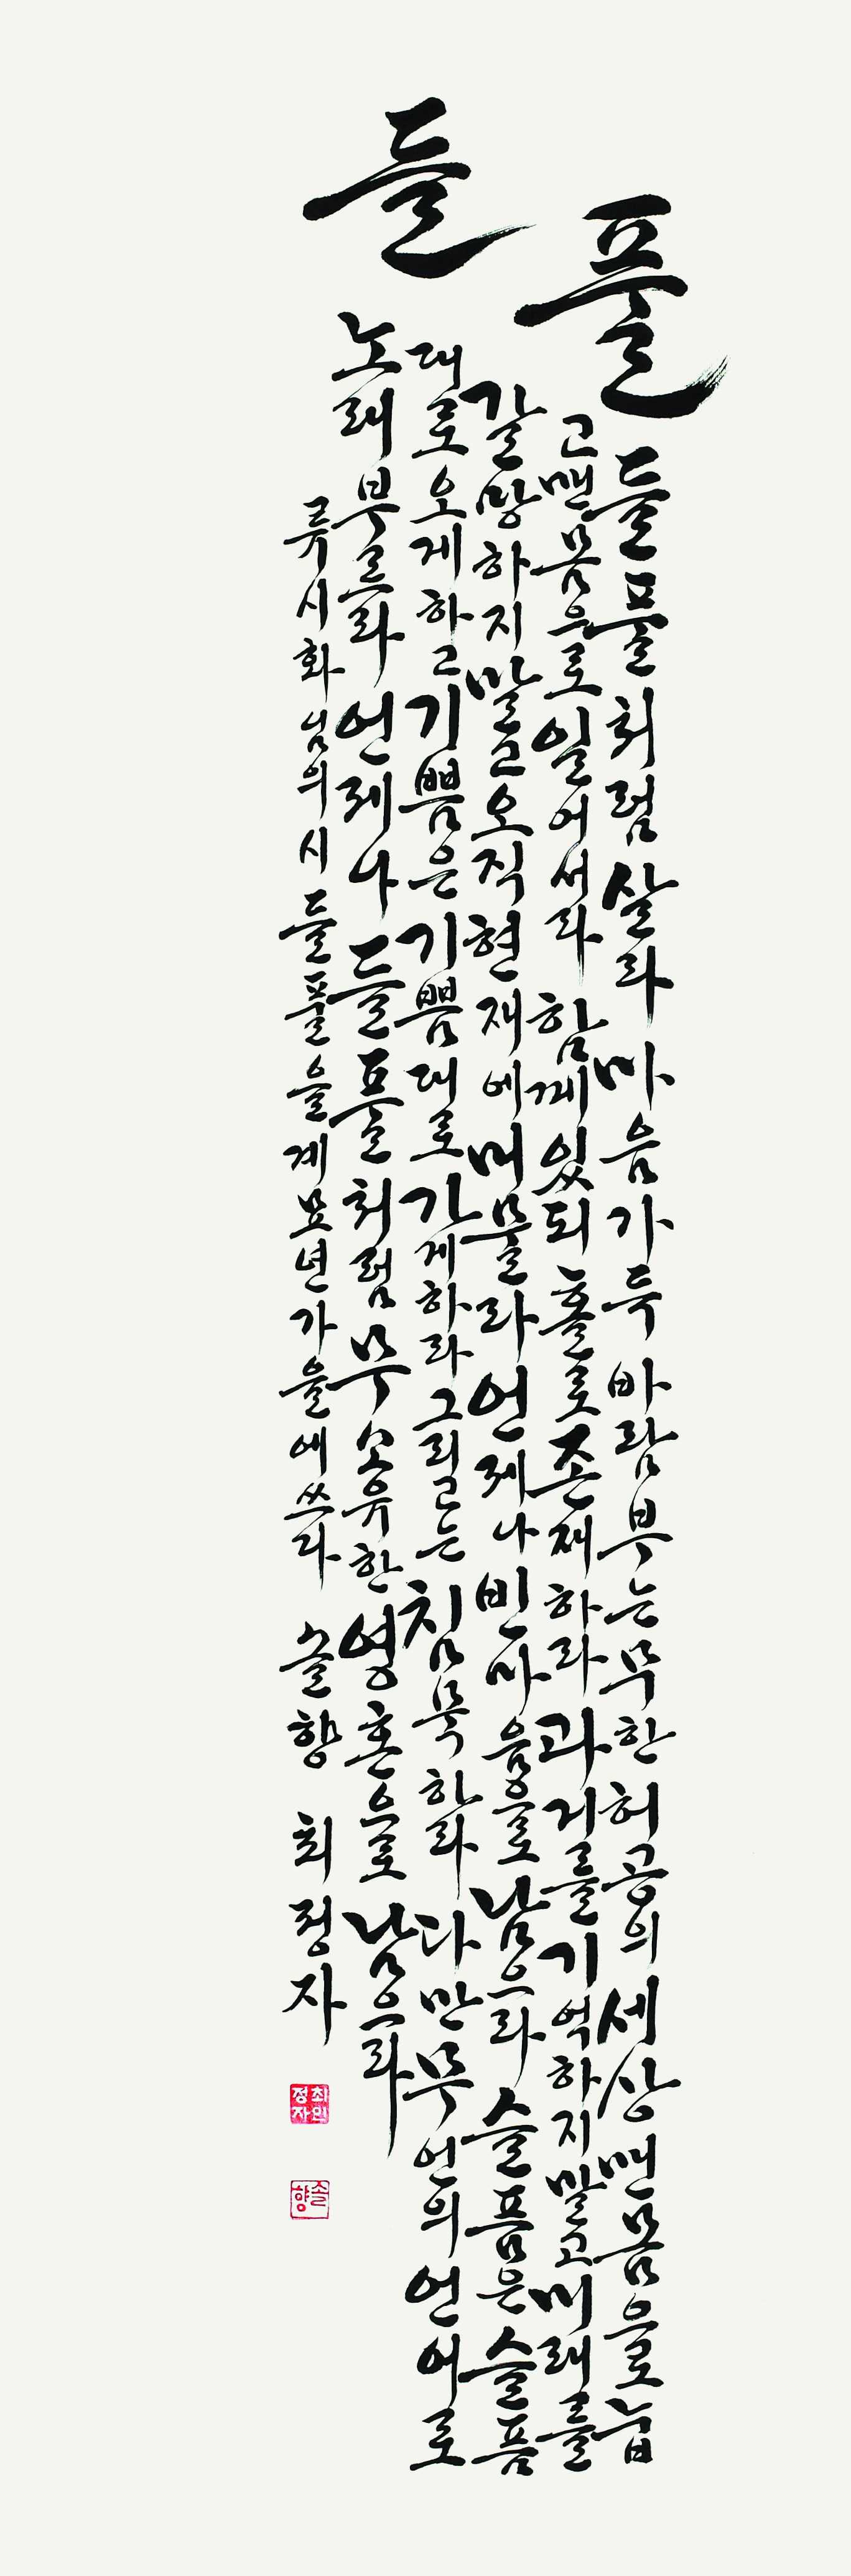 들풀
들풀처럼 살라 마음 가득 바람 부는 무한 허공의 세상 맨몸으로 눕
고 맨몸으로 일어서라 함께 있되 홀로 존재하라 과거를 기억하지 말고 미래를
갈망하지 말고 오직 현재에 머물라 언제나 빈 마음으로 남으라 슬픔은 슬픔
대로 오게 하고 기쁨은 기쁨대로 가게 하라 그리고는 침묵하라 다만 무언의 언어로
노래 부르라 언제나 들풀처럼 무소유한 영혼으로 남으라
류시화 님의 시 들풀을 계묘년 가을에 쓰다 솔향 최정자
최인
정자
솔향